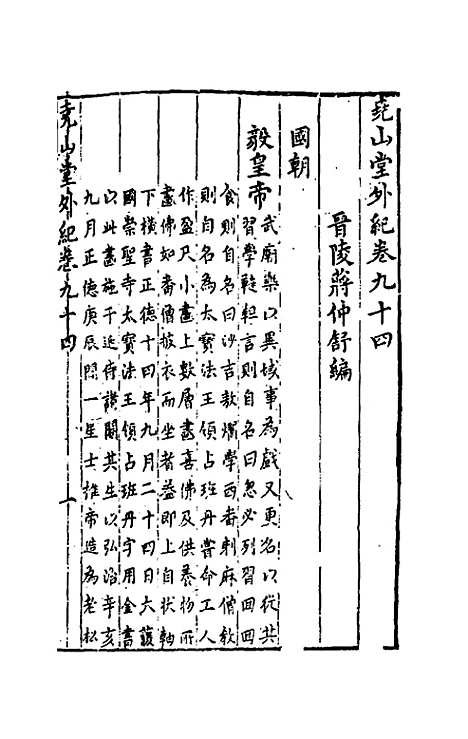 堯山堂外紀卷九十四
晉陵蔣仲舒編
國朝
毅皇帝
武廟樂以異域事為戲又更名以從其
習學韃靼言則自名曰忽必列習回回
食則自名曰沙吉敖爛學西番剌麻僧教
則自名為太寶法王領占班丹嘗命工人
作盈尺小畫上數層畫喜佛及供養物所
畫佛如番僧披衣而坐者葢即上自狀軸
下橫書正德十四年九月二十四日六護
國崇聖寺太寶法王領占班丹字用金書
以此畫施于近侍諸閹其生以弘治辛亥
九月正德庚辰間一星士推帝造為老松
堯山堂外紀卷九十四
一